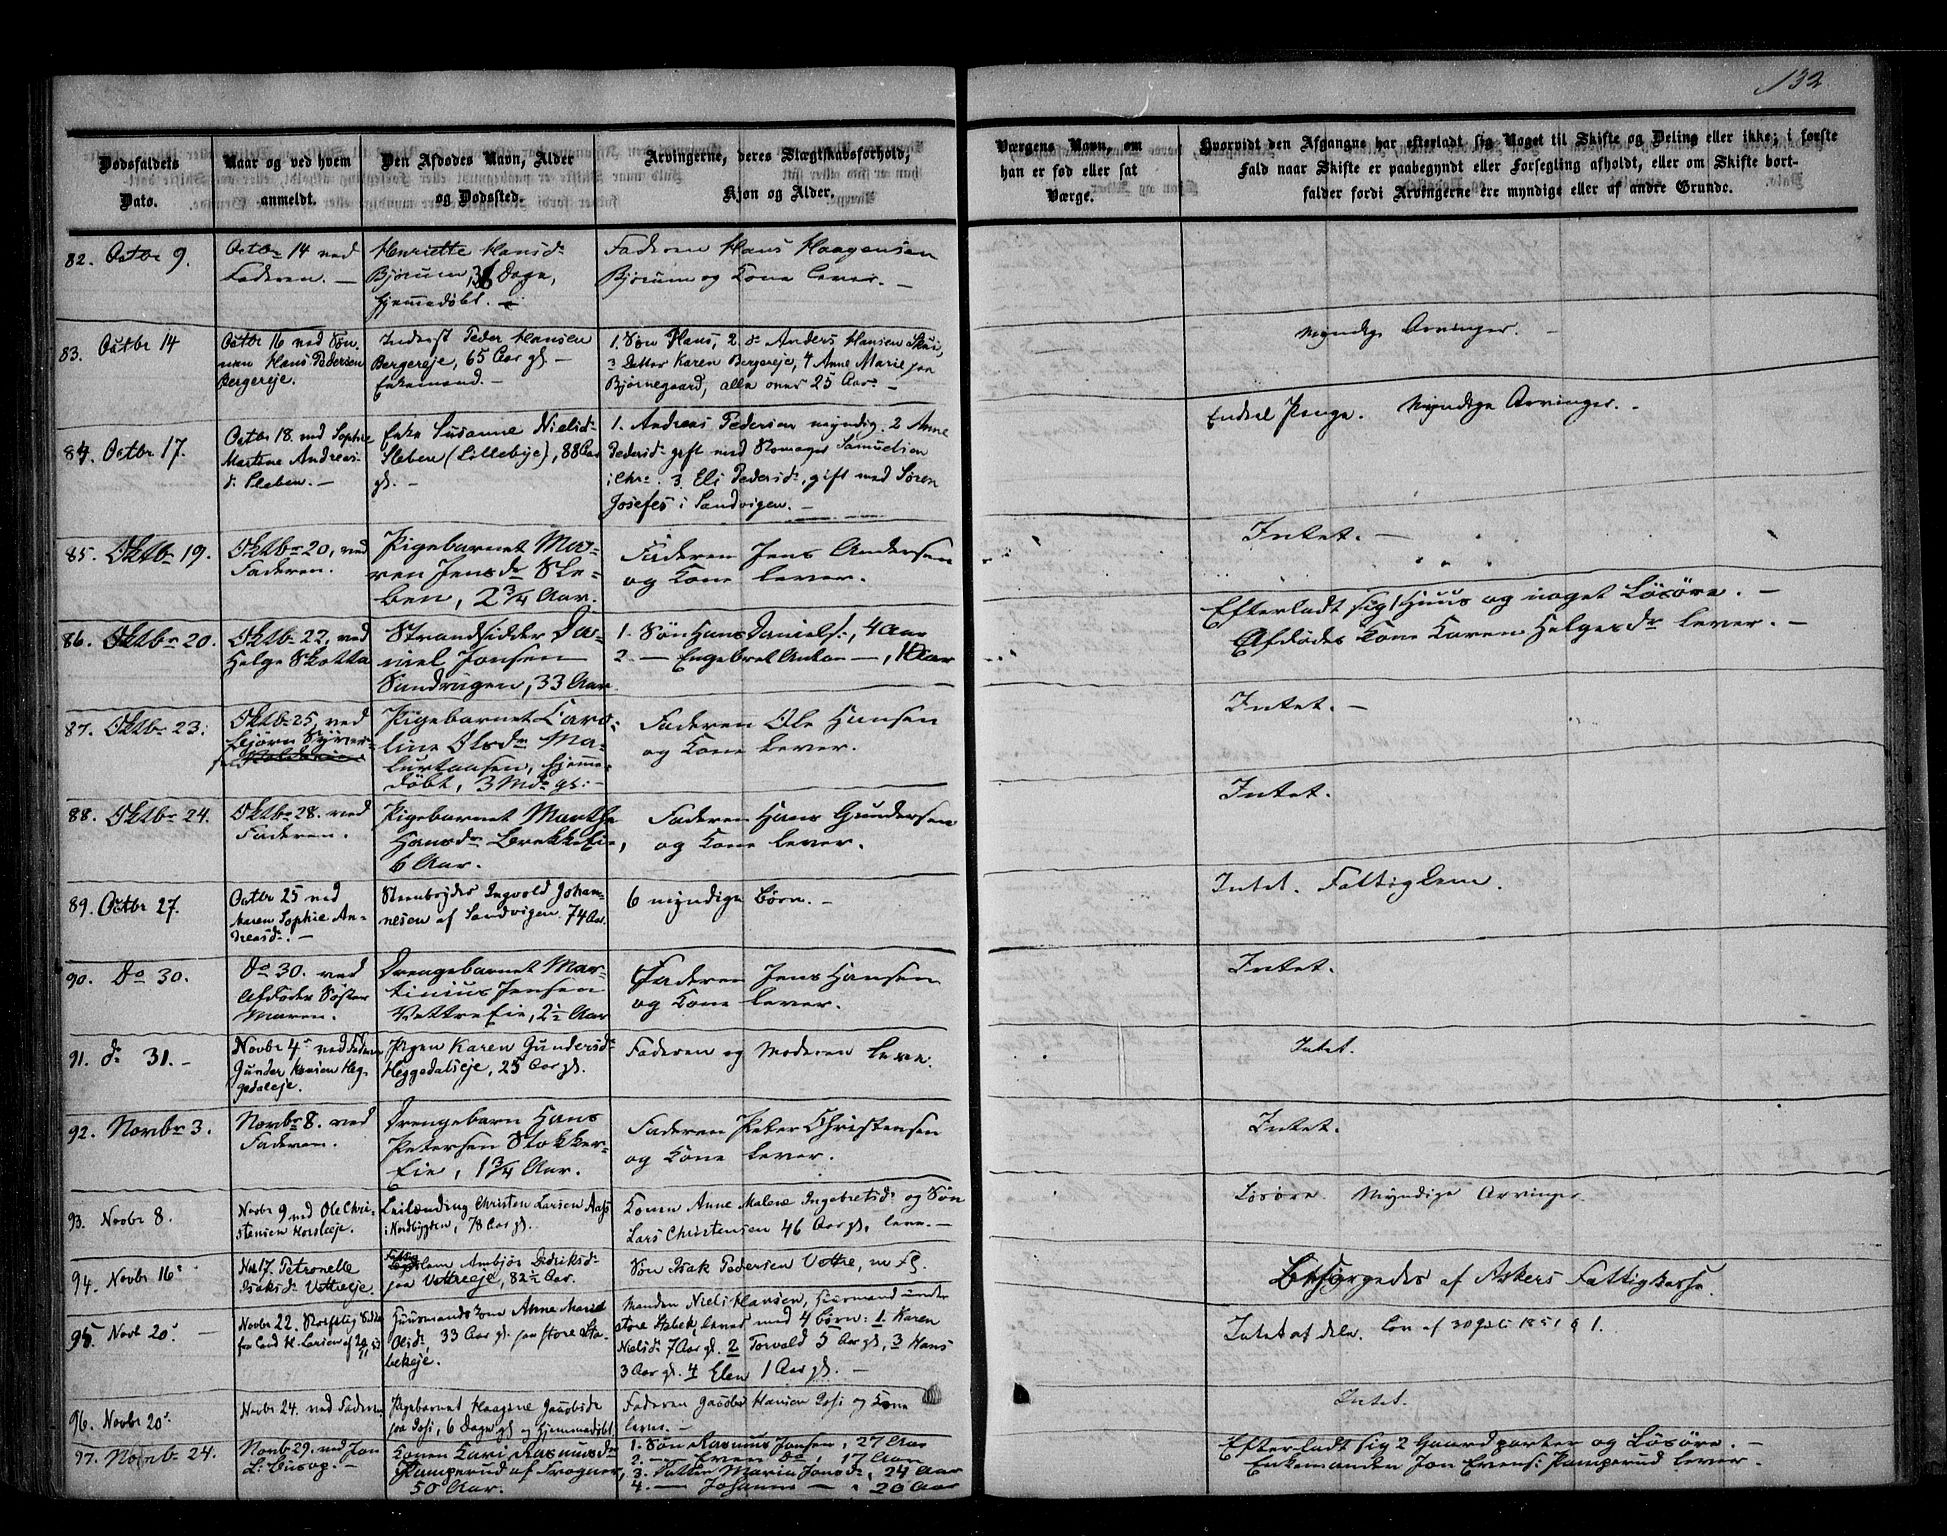 132
Dødsfaldets
Dato.
Naar og ved hvem
anmeldt.
Den Afdødes Navn, Alder
og Dødssted.
Arvingerne, deres Slægtskabsforhold,
Kjøn og Alder.
Værgens Navn, om
han er fød eller sat
Værge.
Hvorvidt den Afgangne har efterladt sig Noget til Skifte og Deling eller ikke; i første
Fald naar Skifte er paabegyndt eller Forsegling afholdt, eller om Skifte bort-
falder fordi Arvingerne ere myndige eller af andre Grunde.
82. Octbr 9.
Octbr 14 ved
Faderen. —
Henriette Hansd
Bjørum, Dage,
hjemmedøbt. —
Faderen Hans Haagensen
Bjørum og Kone lever. —
83. Octbr 14
Octbr 16 ved Søn-
nen Hans Pedersen
Bergereje.
Inderst Peder Hansen
Bergereje, 65 Aar gl —
Enkemand. —
1. Søn Hans, 2. d Anders Hansen Skui,
3 Datter Karen Bergereje, 4 Anne Marie paa
Bjørnegaard, alle over 25 Aar. —
Myndige Arvinger. —
84. Octbr 17.
Octbr 18. ved Sophie
Martine Andreas-
d. Sleben. —
Enke Susanne Nielsd
Sleben (Lillebye), 88 Aar
gl. —
1. Andreas Pedersen myndig. 2 Anne
Pedersd gift med Skomager Samuelsen
i Chr. 3. Eli Pedersd, gift med Søren
Josefes i Sandvigen. —
Endeel Penge. Myndige Arvinger. —
85. Oktbr 19.
Oktbr 20, ved
Faderen.
Pigebarnet Ma-
ren Jensdr Sle-
ben, 2 3/4 Aar.
Faderen Jens Andersen
og Kone lever.
Intet. —
86. Oktbr 20.
Oktbr 22, ved
Helge Skotta
Strandsidder Da-
niel Jonsen
Sandvigen, 33 Aar.
1. Søn Hans Daniels:, 4 Aar
2. — Engebret Anton —, 1 Aar
Efterladt sig 1 Huus og noget Løsøre. —
Afdødes Kone Karen Helgesdr lever. —
87. Oktbr 23.
Oktbr 25, ved
Bjørn Syver-
Pigebarnet Caro-
line Olsdr Ma-
lurtaasen, hjemme-
døbt, 3 Mdr gl: —
Faderen Ole Hansen
og Kone lever.
Intet. —
88. Oktbr 24.
Oktbr 28. ved
Faderen.
Pigebarnet Marthe
Hansdr Brekke Eie,
6 Aar.
Faderen Hans Gundersen
og Kone lever.
Intet.
89. Octbr 27.
Octbr 25 ved
Maren Sophie An-
dreasd. —
Steenbryder Ingvold Johan-
nesen af Sandvigen. 74 Aar.
6 myndige Børn. —
Intet. Fattiglem.
90. Do 30.
Do 30. ved
Afdødes Søster
Maren.
Drengebarnet Mar-
tinius Jensen
Vettre Eie, 2 1/2 Aar
Faderen Jens Hansen
og Kone lever.
Intet.
91. d 31. —
Novbr 4 ved Faderen
Gunder Hansen Heg-
gedaleje.
Pigen Karen Gundersd
Heggedalseje, 25 Aar gl.
Faderen og Moderen leve.
Intet.
92. Novbr 3.
Novbr 8. ved
Faderen.
Drengebarn Hans
Petersen Stokker-
Eie, 1 3/4 Aar.
Faderen Peter Christensen
og Kone lever.
Intet.
93. Novbr 8.
Novbr 9 ved Ole Chri-
stensen Horsleeje.
Leilænding Christen Larsen Aaps
i Nordbygden, 78 Aar gl.
Konen Anne Malene Ingebretsd og Søn
Lars Christensen 46 Aar gl, leve. —
Løsøre. Myndige Arvinger.
94. Novbr 16
Nov 17. Petronelle
Isaksd Vettreeje.
Fattiglem Ambjør Didriksd
paa Vettreeje, 82 1/2 Aar.
Søn Isak Pedersen Vettre,
Besørgedes af Askers Fattigkasse.
95. Novb 20. —
Novbr 22. Skriftlig
fra Cand H. Larsen af
Huusmandskone Anne Marie
Olsd, 33 Aar gl. paa store Sta-
bekeje.
Manden Niels Hansen, Huusmand under
store Stabek, lever med 4 Børn: 1. Karen
Nielsd 7 Aar gl. 2 Torvald 5 Aar gl, 3 Hans
3 Aar gl. 4 Elen 1 Aar gl. —
Intet at dele. Lov af 30 Juli 1851 § 1.
96. Novbr 20.
Novbr 24. ved Faderen
Pigebarnet Haagine Jacobsd
6 Dage gl og hjemmedøbt
Faderen Jacob Hansen og Kone
lever. —
Intet.
97. Novbr 24.
Novbr 29. ved Jon
L: Busop. —
Konen Kari Rasmusdr
Kamperud af Trogner,
50 Aar.
1. Søn Rasmus Jonsen, 27 Aar
2. — Even Do, 17 Aar
3. Datter Maria Jonsdr, 24 Aar
4. — Johanne —, 20 Aar
Efterladt sig 2 Gaardparter og Løsøre. —
Enkemanden Jon Evens: Kamperud lever.